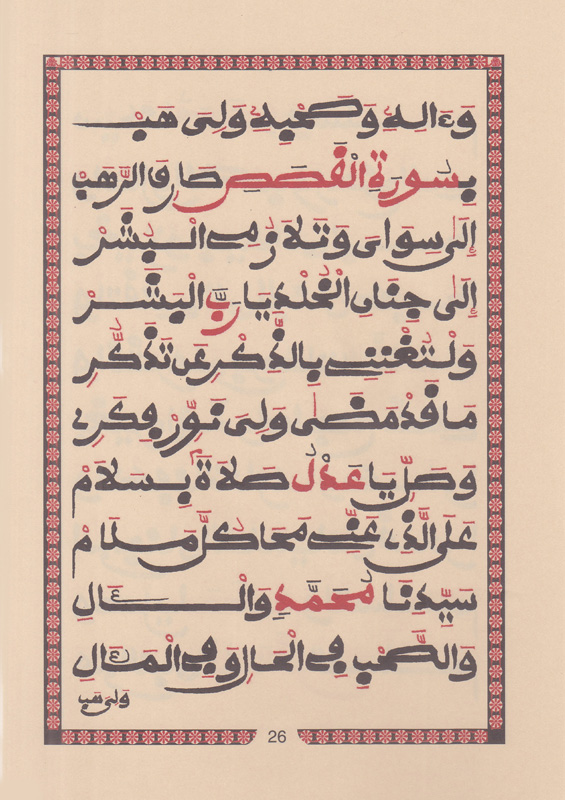 وَءَالِهِ وَصَحْبِهِ وَلِى هَبْ
بِسُورَةِ الْقَصَصِ صَارِفَ الرَّهَبْ
إِلَى سِوَاىَ وَتَلَازُمِ الْبَشَرْ
إِلَى جِنَانِ الْخُلْدِ يَا رَبَّ الْبَشَرْ
وَلْتُغْنِنِى بِالذِّكْرِ عَن تَذَكُّرِ
مَا قَدْ مَضَى وَلِى نَوِّرْ فِكَرِى
وَصَلِّ يَا عَدْلُ صَلَاةً بِسَلَامْ
عَلَى الَّذِى عَنِّى مَحَا كُلَّ مَلَامْ
سَيِّدِنَا مُحَمَّدٍ وَالْآلِ
وَالصَّحْبِ فِى الْحَالِ وَفِى الْمَآلِ
وَلِى هَبْ
26